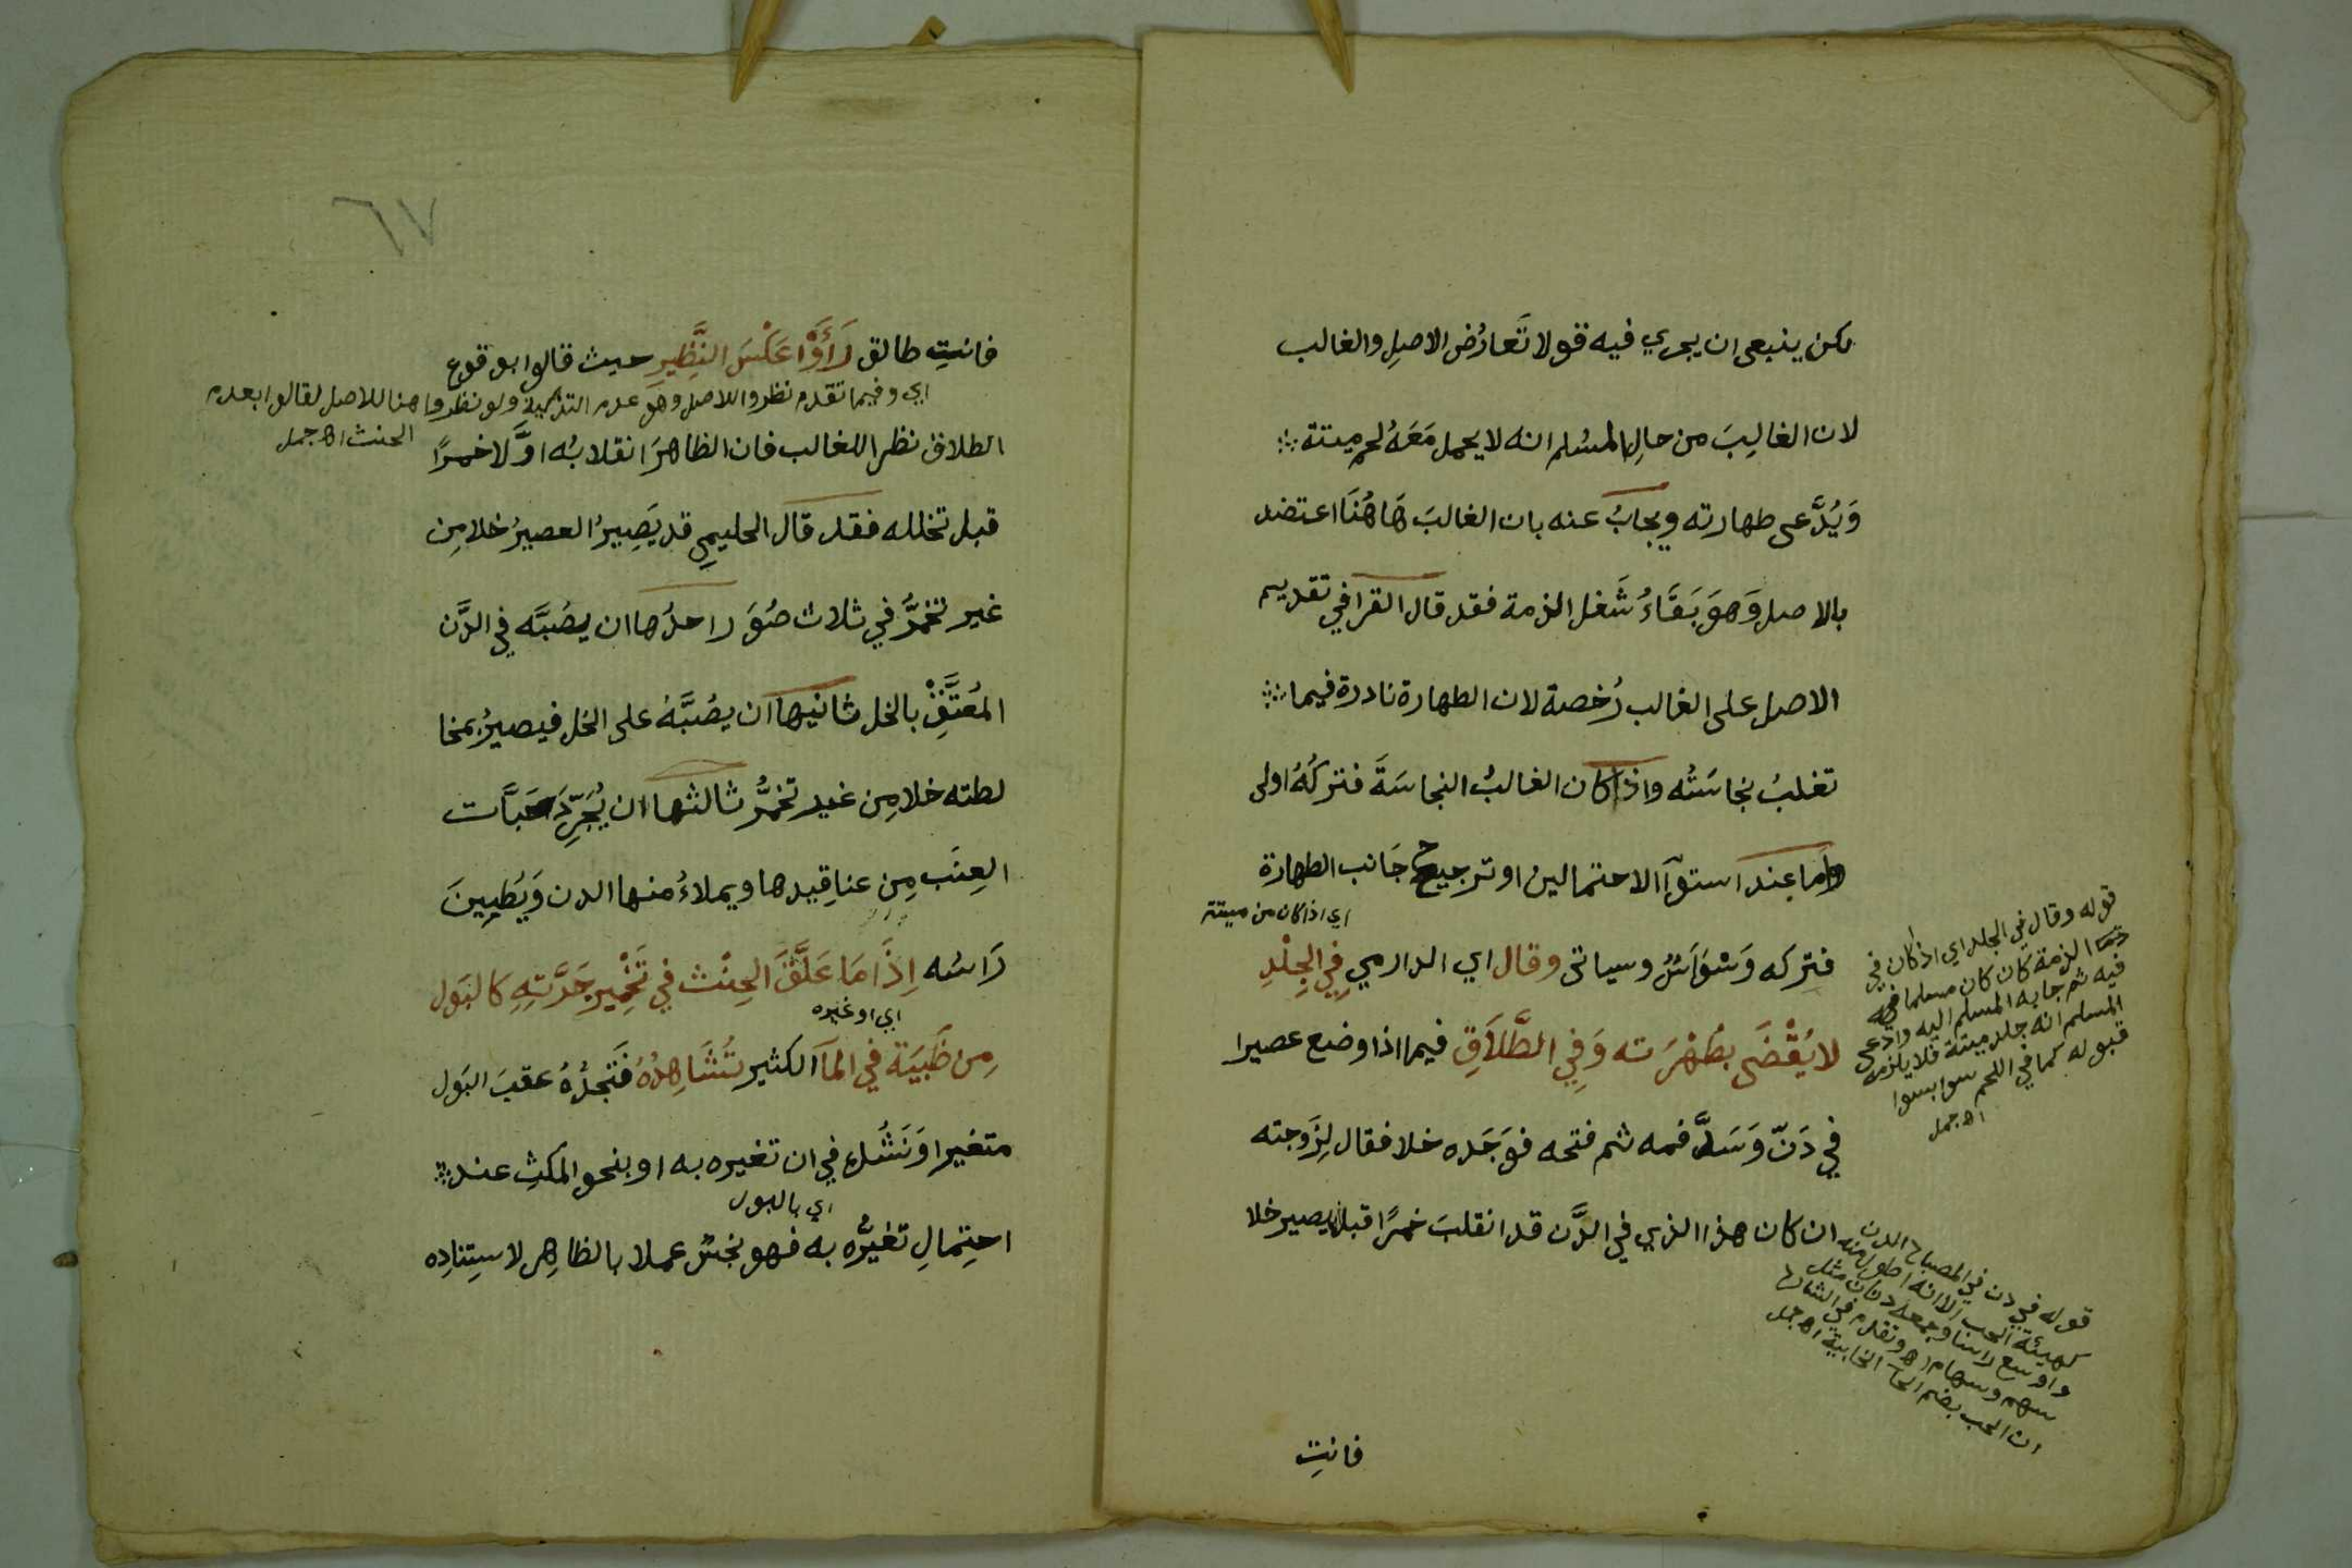 لكن ينبغي ان يجري فيه قولا تَعارُض الاصلِ والغالب
لان الغالِبَ من حالِ المسُلم انه لا يحمل مَعَهُ لحم ميتة
وَيُدَّعى طهارته ويجابُ عنه بان الغالبَ هَاهُنَا اعتضد
بالاصل وَهوَ بَقَاءُ شَغل الذمة فقد قال القرافي تقديم
الاصل على الغالب رُخصة لان الطهارة نادرة فيما
تغلبُ نجاسَتُه واذا كان الغالبُ النجاسَةَ فتركُهُ اولى
واما عِند استوآ الاحتمالين او ترجيح جَانب الطهارة
اي اذا كان من ميتة
فتركه وَسْوَاسٌ وسياتى وقال اي الدارمي فِي الجِلْدِ
لا يُقْضَى بطُهْرَته وَفِي الطَّلَاقِ فيما اذا وضع عصيرا
في دَنّ وَسَدَّ فمه ثم فتحه فوَجَده خلا فقال لِزَوجته
ان كان هذا الذي في الدَّن قد انقلبَ خمرًا قبل يصير خلا
قوله وقال في الجلد اي اذا كان في
الذمة كان كان مسلما فيه
فيه ثم جا به المسلم اليه وادعى
المسلم انه جلد ميتة فلا يلزمه
قبوله كما في اللحم سوا بسوا
اه جمل
قوله في دن في المصباح الدن
كهيئة الحب الا انه اطول منه
واوسع راسا وجمعه دنان مثل
سهم وسهام اه وتقدم في الشارح
ان الحب بضم الحآ الخابية اه جمل
فانتِ
٦٧
فانتِ طالق رَأَوْا عَكْسَ النَّظِيرِ حيث قالوا بوقوع
اي وفيما تقدم نظروا للاصل وهو عدم التذكية ولو نظروا هنا للاصل لقالوا بعدم
الحنث اه جمل
الطلاق نظرا للغالب فان الظاهرَ انقلابُه اوَّلا خمرًا
قبل تخلله فقد قال الحليمِي قد يَصِيرُ العصيرُ خلا مِن
غير تخمُّر في ثلاث صُوَر احدُها ان يصُبَّه في الدَّن
المُعتَّقِ بالخل ثانيها ان يصُبَّهُ على الخل فيصيرُ بمخا
لطته خلا مِن غير تخمُّر ثالثها ان يُجَرِّدَ حَبَّات
العِنَب مِن عناقِيدها ويملاءُ منها الدن وَيُطَيِينَ
رَاسَه اِذَا مَا عَلَّقَ الحِنْث في تَخْمِير جَرَّتِهِ كَالبَول
اي او غيره
مِن ظَبيَة في المآ الكثير تُشَاهِدُهُ فَتَجدُهُ عقبَ البَول
متغيرا وَنَشُك في ان تغيره به او بنحو المكثِ عند
اي بالبول
احتِمالِ تغيُّره به فهو نجسٌ عملا بالظاهِر لاستِنادِه